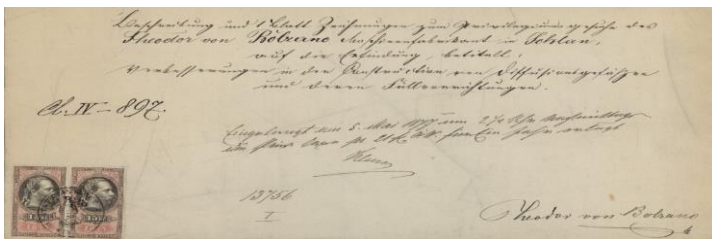 Beschreibung und 1 Blatt Zeichnungen zum Privilegiumsgesuche des
Theodor von Bolzano Maschinenfabrikant in Schlan,
auf die Erfindung, betitelt:
Verbesserungen in der Construction von Diffusionsgefäßen
und deren Füllvorrichtungen.
Cl. IV – 897.
Eingelangt am 5. Mai 1877 um 2¾ Uhr Nachmittags
die für ein Jahr erlegt
13756
I
Theodor von Bolzano